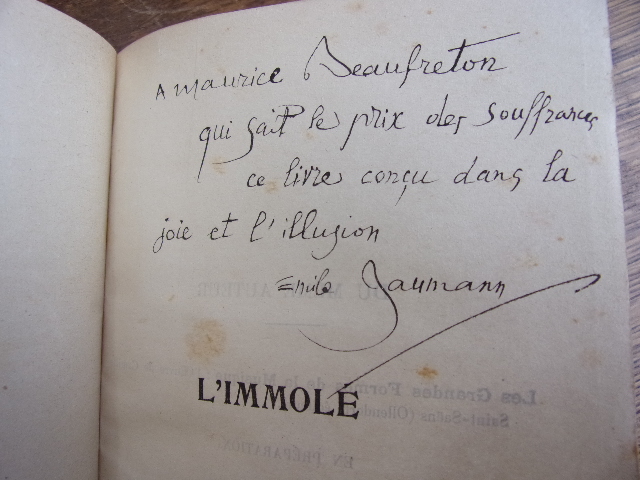 A Maurice Beaufreton
qui sait le prix des souffrances
ce livre conçu dans la
joie et l'illusion
Emile Baumann
L'IMMOLÉ
DU MÊME AUTEUR
Les Grandes Formes de la Musique
Saint-Saëns (Ollend
EN PRÉPARATION